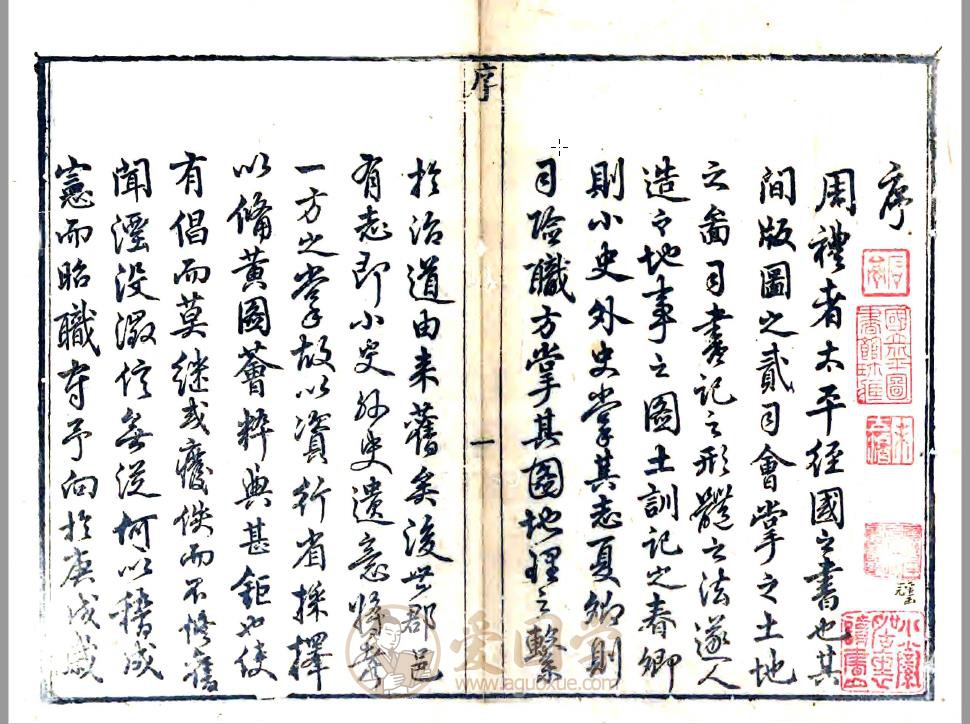 序
周禮者太平经國之書也其
間版圖之貳司會掌之土地
之啚司書記之形體之法遂人
造之地事之圖土訓記之春卿
則小史外史掌其志夏卿則
司險職方掌其圖地理之繫
序
一
於治道由来舊矣後世郡邑
有志即小史外史遺意將考
一方之掌故以資行省採擇
以俻黃圖薈粹典甚鉅也使
有倡而莫継或癈佚而不修舊
聞湮没徵信無從何以稽成
憲而昭職守予向於庚戌歲
爱国学
www.aguoxue.com